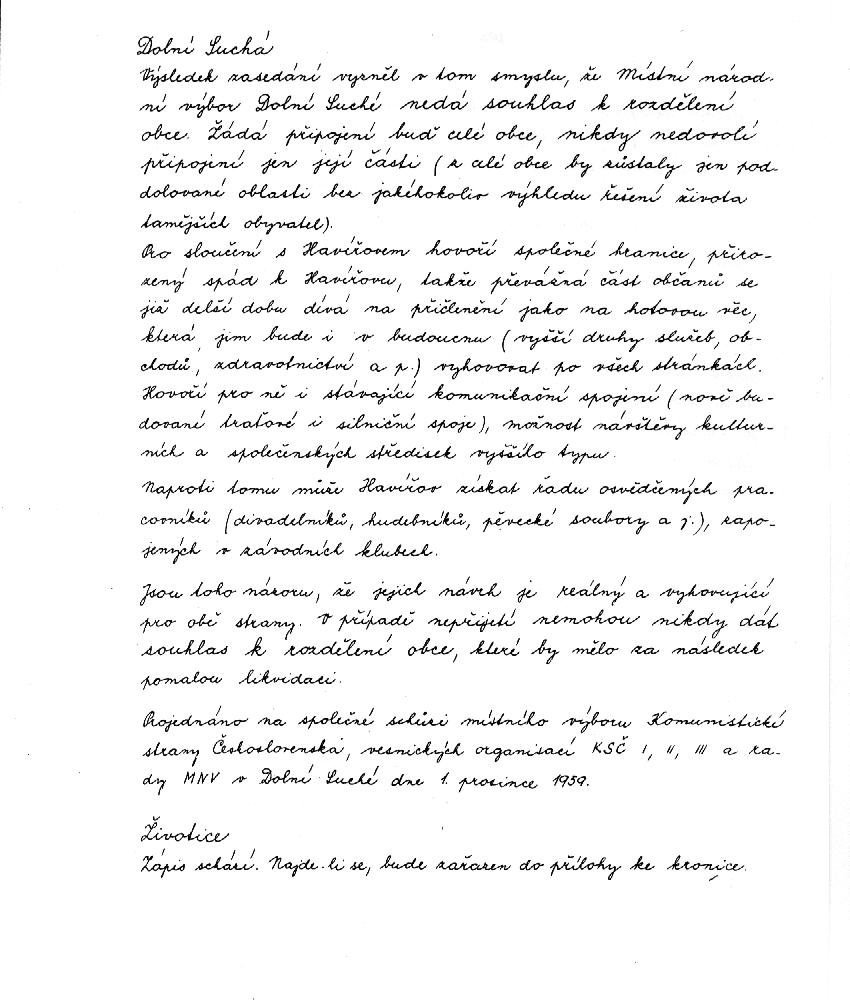 Dolní Suchá
Výsledek zasedání vyzněl v tom smyslu, že Místní národ-
ní výbor Dolní Suché nedá souhlas k rozdělení
obce. Žádá připojení buď celé obce, nikdy nedovolí
připojení jen její části (z celé obce by zůstaly jen pod-
dolované oblasti bez jakéhokoliv výhledu řešení života
tamějších obyvatel).
Pro sloučení s Havířovem hovoří společné hranice, přiro-
zený spád k Havířovu, takže převážná část občanů se
již delší dobu dívá na přičlenění jako na hotovou věc,
která jim bude i v budoucnu (vyšší druhy služeb, ob-
chodů, zdravotnictví a p.) vyhovovat po všech stránkách.
Hovoří pro ně i stávající komunikační spojení (nově bu-
dované traťové i silniční spoje), možnost návštěvy kultur-
ních a společenských středisek vyššího typu.
Naproti tomu může Havířov získat řadu osvědčených pra-
covníků (divadelníků, hudebníků, pěvecké soubory a j.), zapo-
jených v závodních klubech.
Jsou toho názoru, že jejich návrh je reálný a vyhovující
pro obě strany. V případě nepřijetí nemohou nikdy dát
souhlas k rozdělení obce, které by mělo za následek
pomalou likvidaci.
Projednáno na společné schůzi místního výboru Komunistické
strany Československa, vesnických organisací KSČ I, II, III a ra-
dy MNV v Dolní Suché dne 1. prosince 1959.
Životice
Zápis schází. Najde-li se, bude zařazen do přílohy ke kronice.